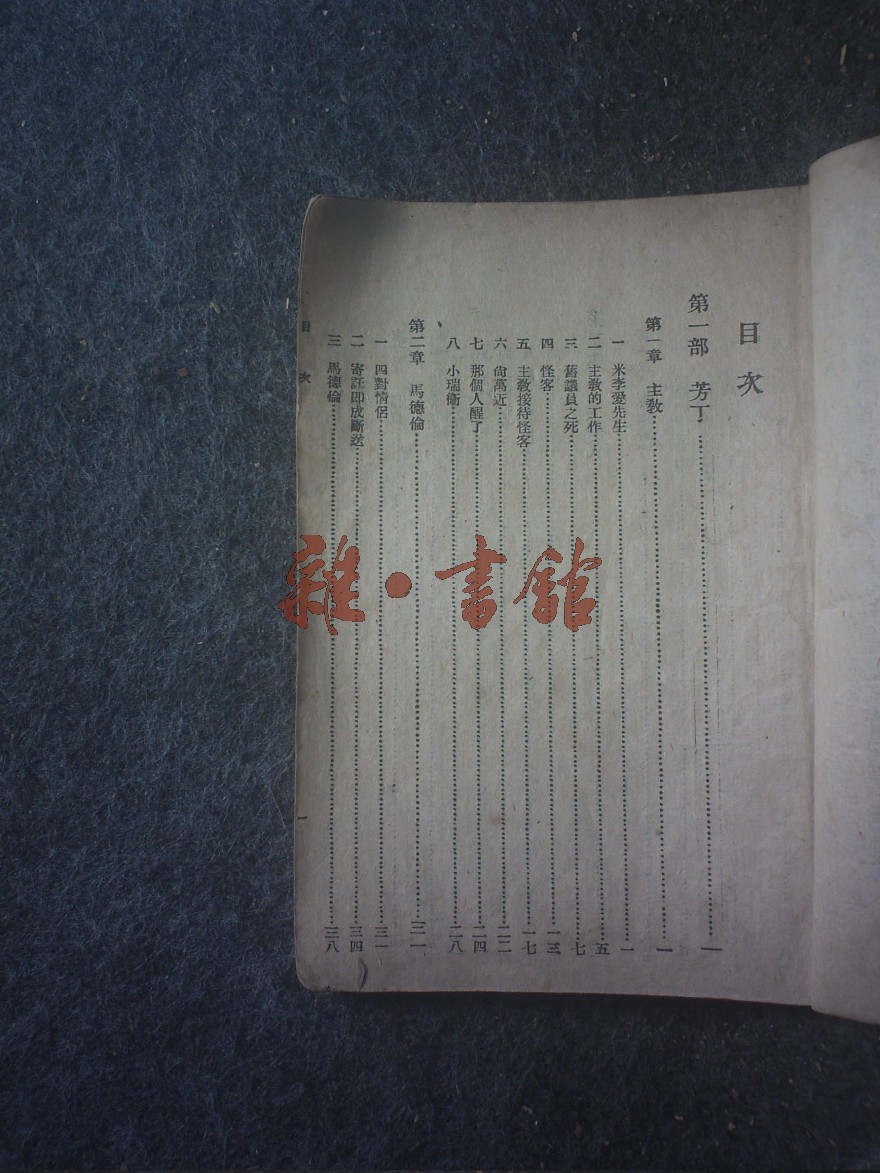 目次
第一部 芳丁 一
第一章 主教 一
一 米李愛先生 一
二 主教的工作 五
三 舊議員之死 七
四 怪客 一三
五 主教接待怪客 一七
六 尙萬近 二二
七 那個人醒了 二四
八 小瑞衛 二八
第二章 馬德倫 三一
一 四對情侶 三一
二 寄託即成斷送 三四
三 馬德倫 三八
目次
一
雜·書館